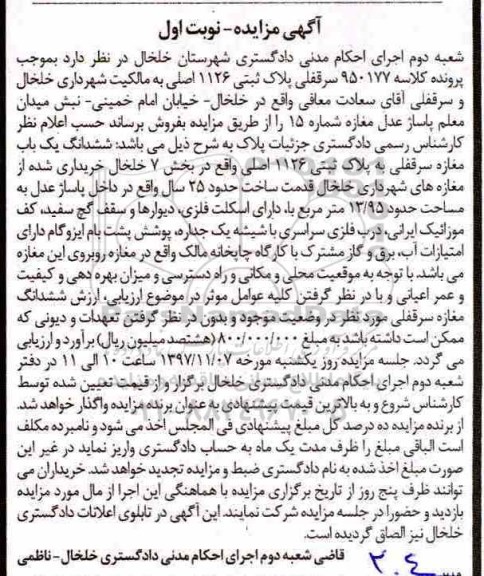 آگهی مزایده - نوبت اول
شعبه دوم اجرای احکام مدنی دادگستری شهرستان خلخال در نظر دارد بموجب
پرونده کلاسه ۹۵۰۱۷۷ سرقفلی پلاک ثبتی ۱۱۲۶ اصلی به مالکیت شهرداری خلخال
و سرقفلی آقای سعادت معافی واقع در خلخال- خیابان امام خمینی- نبش میدان
معلم پاساژ عدل مغازه شماره ۱۵ را از طریق مزایده بفروش برساند حسب اعلام نظر
کارشناس رسمی دادگستری جزئیات پلاک به شرح ذیل می باشد: ششدانگ یک باب
مغازه سرقفلی به پلاک ثبتی ۱۱۲۶ اصلی واقع در بخش ۷ خلخال خریداری شده از
مغازه های شهرداری خلخال قدمت ساخت حدود ۲۵ سال واقع در داخل پاساژ عدل به
مساحت حدود ۱۳/۹۵ متر مربع با، دارای اسکلت فلزی، دیوارها و سقف گچ سفید، کف
موزائیک ایرانی، درب فلزی سراسری با شیشه یک جداره، پوشش پشت بام ایزوگام دارای
امتیازات آب، برق و گاز مشترک با کارگاه چاپخانه مالک واقع در مغازه روبروی این مغازه
می باشد. با توجه به موقعیت محلی و مکانی و راه دسترسی و میزان بهره دهی و کیفیت
و عمر اعیانی و با در نظر گرفتن کلیه عوامل موثر در موضوع ارزیابی، ارزش ششدانگ
مغازه سرقفلی مورد نظر در وضعیت موجود و بدون در نظر گرفتن تعهدات و دیونی که
ممکن است داشته باشد به مبلغ ۸۰۰/۰۰۰/۰۰۰ (هشتصد میلیون ریال) برآورد و ارزیابی
می گردد. جلسه مزایده روز یکشنبه مورخه ۱۳۹۷/۱۱/۰۷ ساعت ۱۰ الی ۱۱ در دفتر
شعبه دوم اجرای احکام مدنی دادگستری خلخال برگزار و از قیمت تعیین شده توسط
کارشناس شروع و به بالاترین قیمت پیشنهادی به عنوان برنده مزایده واگذار خواهد شد.
از برنده مزایده ده درصد کل مبلغ پیشنهادی فی المجلس اخذ می شود و نامبرده مکلف
است الباقی مبلغ را ظرف مدت یک ماه به حساب دادگستری واریز نماید در غیر این
صورت مبلغ اخذ شده به نام دادگستری ضبط و مزایده تجدید خواهد شد. خریداران می
توانند ظرف پنج روز از تاریخ برگزاری مزایده با هماهنگی این اجرا از مال مورد مزایده
بازدید و حضورا در جلسه مزایده شرکت نمایند. این آگهی در تابلوی اعلانات دادگستری
خلخال نیز الصاق گردیده است.
قاضی شعبه دوم اجرای احکام مدنی دادگستری خلخال- ناظمی
۲۰۴